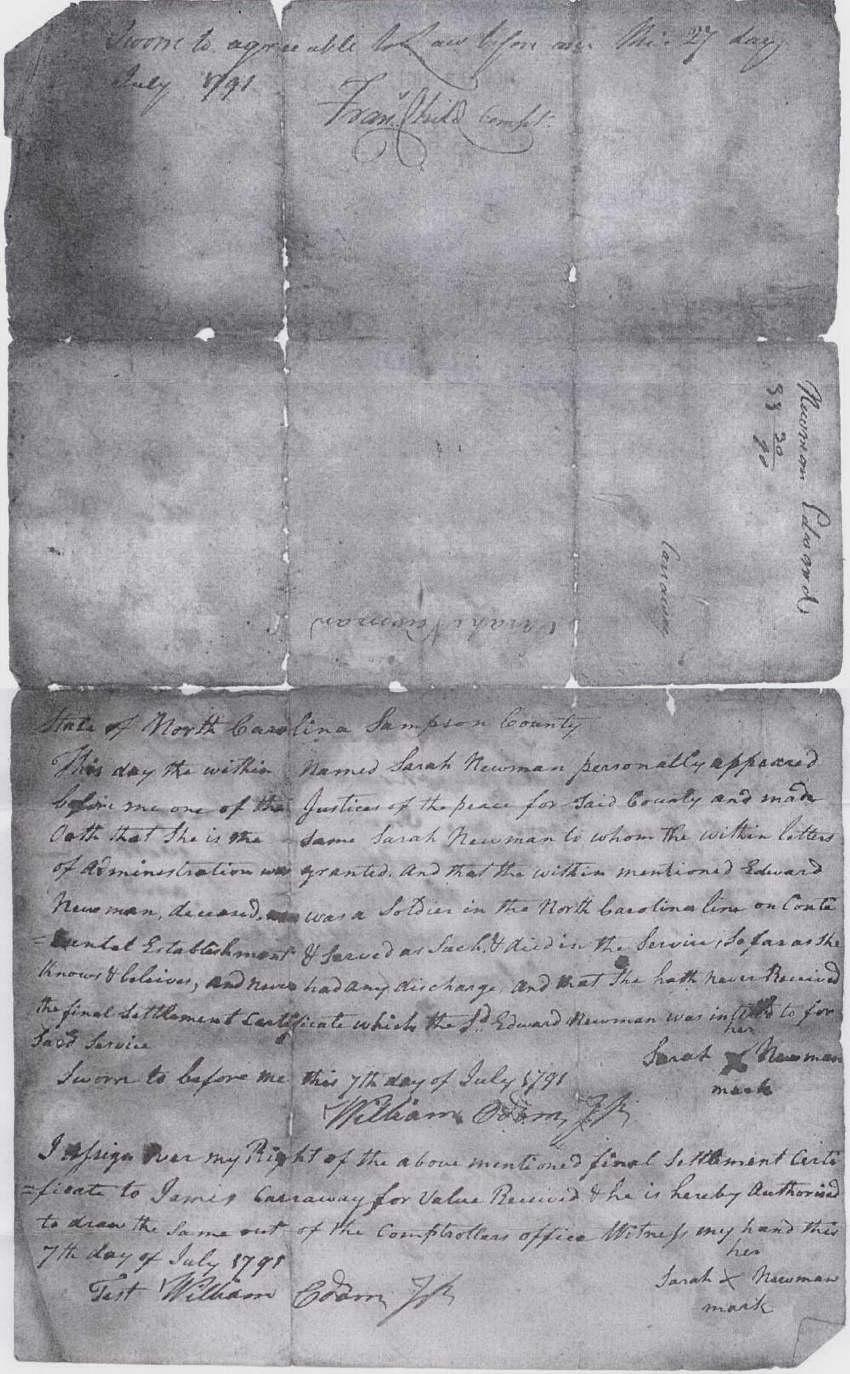 Sworn to agreeable to Law before me this 27 day
July 1791
Fran. Child Compt.
Newman Edward
33 30/90
Carraway
Sarah Newman
State of North Carolina Sampson County
This day the within Named Sarah Newman personally appeared
before me one of the Justices of the peace for Said County and made
Oath that She is the Same Sarah Newman to whom the within letters
of Administration was granted, and that the within mentioned Edward
Newman, deceased, was a Soldier in the North Carolina line on Conti
=nental Establishment & Served as Such, & died in the Service, So far as She
Knows & beleives, and never had any discharge, and that She hath never Received
the final Settlement Certificate which the Sd. Edward Newman was intitled to for
Said Service
her
Sarah X Newman
mark
Sworn to before me this 7th day of July 1791
William Odom JP
I assign over my Right of the above mentioned final Settlement Certi
=ficate to James Carraway for Value Received & he is hereby Authorised
to draw the Same out of the Comptrollers office Witness my hand this
7th day of July 1791
her
Sarah X Newman
mark
Test William Odom JP